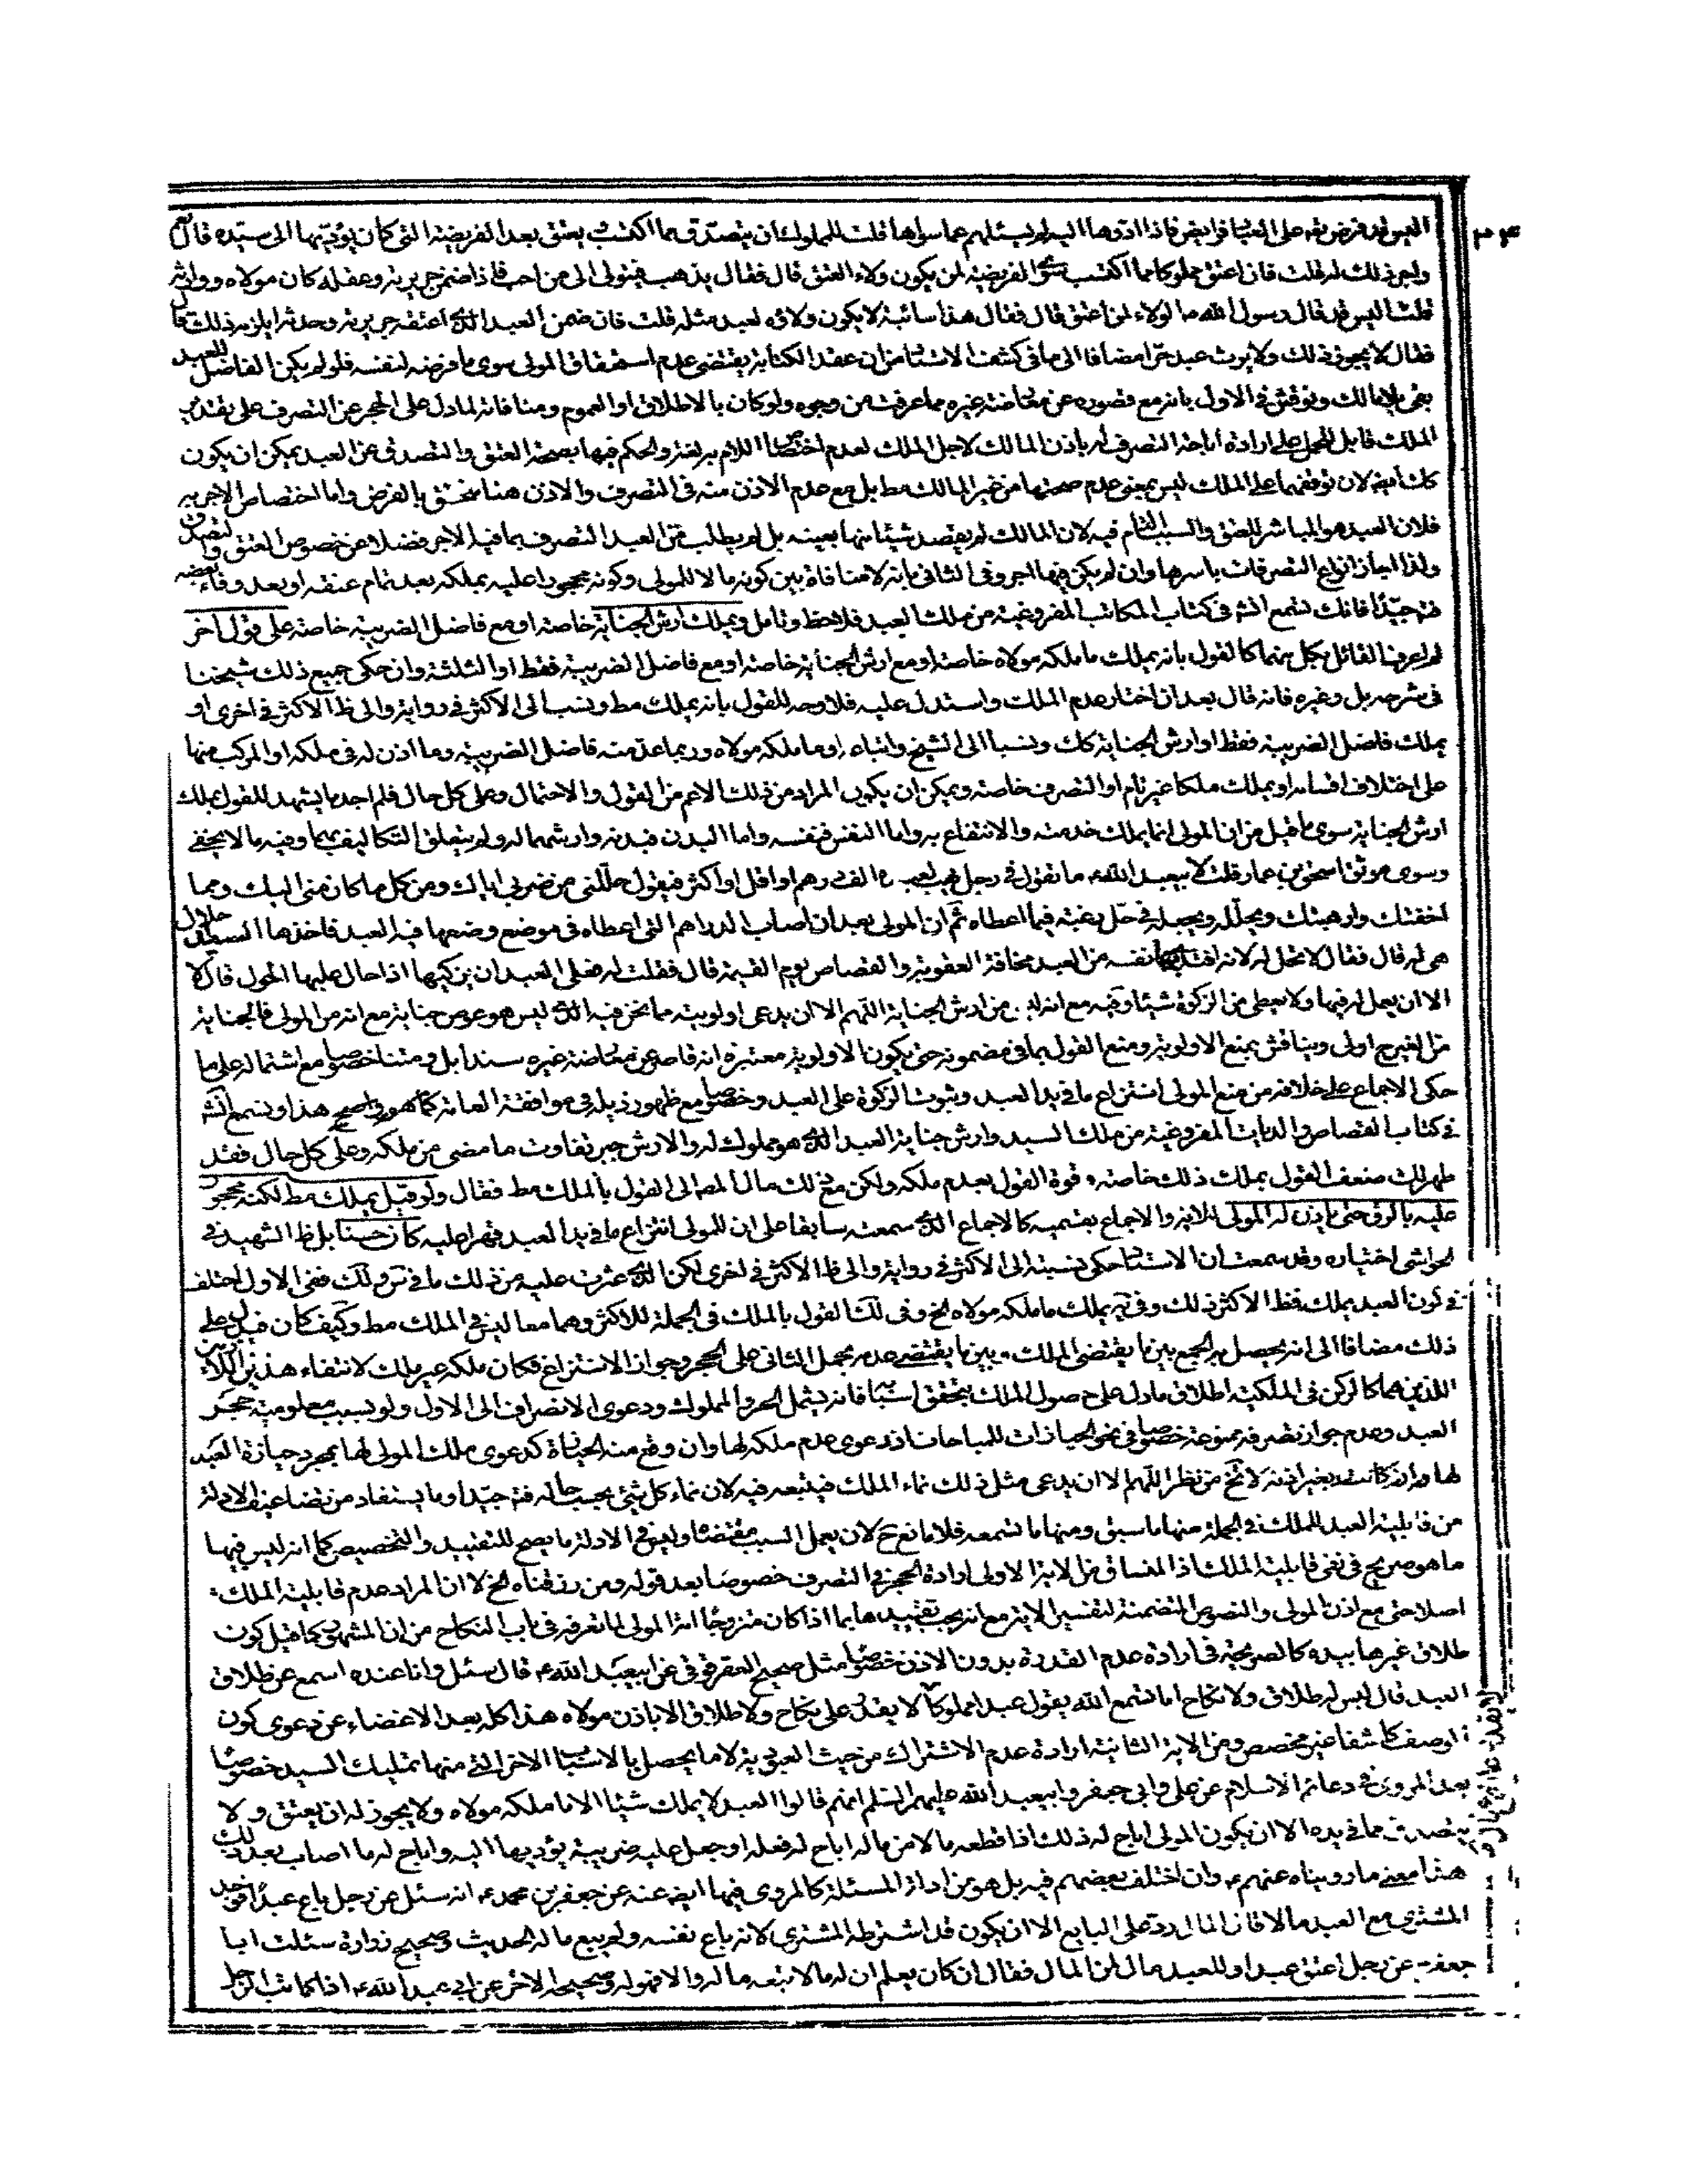 اليس قد فرض الله على العباد فرائض فاذا ادوها اليه لم يسئلهم عما سواها قلت للمملوك ان يتصدق مما اكتسب ويعتق بعد الفريضة التي كان يؤديها الى سيده قال
واجر ذلك له قلت فان اعتق مملوكا مما اكتسب سوى الفريضة لمن يكون ولاء العتق قال فقال يذهب فيتولى الى من احب فاذا ضمن جريرته وعقله كان مولاه وورثه
قلت اليس قد قال رسول الله ص الولاء لمن اعتق قال فقال هذا سائبة لا يكون ولاؤه لعبد مثله قلت فان ضمن العبد الذي اعتقه جريرته وحدثه ايلزمه ذلك قال
فقال لا يجوز ذلك ولا يرث عبد حرا مضافا الى ما في كشف الاستاد من ان عقد الكتابة يقتضي عدم استحقاق المولى سوى ما فرضه لنفسه فلو لم يكن الفاضل للعبد
بقى بلا مالك ونوقش في الاول بانه مع قصوره عن معارضة غيره مما عرفت من وجوه ولو كان بالاطلاق او العموم ومنافاته لما دل على الحجر عن التصرف على تقدير
الملك قابل للحمل على ارادة اباحة التصرف له باذن المالك لا جل الملك لعدم اختصاص اللام به لغة والحكم فيها بصحة العتق والتصدق عن العبد يمكن ان يكون
كك ايضا لان توقفهما على الملك ليس بمعنى عدم صحتها من غير المالك مط بل مع عدم الاذن منه في التصرف والاذن هنا متحقق بالفرض واما اختصاص الاجر به
فلان العبد هو المباشر للعتق والسبب التام فيه لان المالك لم يقصد شيئا منها بعينه بل لم يطلب من العبد التصرف بما فيه الاجر فضلا عن خصوص العتق والتصدق
ولذا اجاز انواع التصرفات باسرها وان لم يكن فيها اجر وفي الثاني بانه لا منافاة بين كونه مالا للمولى وكونه محجورا عليه يملكه بعد تمام عتقه او بعد وفاء بعضه
فتـ جيدا فانك تسمع انش في كتاب المكاتب المفروغية من ملك العبد فلاحظ وتامل ويملك ارش الجناية خاصة او مع فاضل الضريبة خاصة على قول اخر
لم اعرف القائل بكل منهما كالقول بانه يملك ما ملكه مولاه خاصة او مع ارش الجناية خاصة او مع فاضل الضريبة فقط او الثلثة وان حكى جميع ذلك شيخنا
في شرحه بل وغيره فانه قال بعد ان اختار عدم الملك واستدل عليه فلا وجه للقول بانه يملك مط ونسب الى الاكثر في رواية والى ظ الاكثر في اخرى او
يملك فاضل الضريبة فقط او ارش الجناية كك ونسبا الى الشيخ واتباعه او ما ملكه مولاه وربما عد منه فاضل الضريبة وما اذن له في ملكه او المركب منها
على اختلاف اقسامه او يملك ملكا غير تام او التصرف خاصة ويمكن ان يكون المراد من ذلك الاعم من القول والاحتمال وعلى كل حال فلم اجد ما يشهد للقول بملك
ارش الجناية سوى ما قيل من ان المولى انما يملك خدمته والانتفاع به واما النفس فنفسه واما البدن فبدنه وارشهما له ولم يتعلق التكاليف بهما وفيه ما لا يخفى
وسوى موثق اسحق بن عمار قلت لابيعبد الله ع ما تقول في رجل يهب لعبده الف درهم او اقل او اكثر فيقول حللني من ضربي اياك ومن كل ما كان مني اليك ومما
اخفتك وارهبتك ويحلله ويجعله في حل رغبة فيما اعطاه ثم ان المولى بعد ان اصاب الدراهم التي اعطاه في موضع وضعها فيه العبد فاخذها السيد احلال
هي له قال فقال لا تحل له لانه افتدى بها نفسه من العبد مخافة العقوبة والقصاص يوم القيمة قال فقلت له فعلى العبد ان يزكيها اذا حال عليها الحول قال لا
الا ان يعمل له فيها ولا يعطى من الزكوة شيئا وفيه مع انه ليس من ارش الجناية اللهم الا ان يدعى اولويته مما نحن فيه الذي ليس هو عوض جناية مع انه من المولى فالجناية
من الغير ح اولى ويناقش بمنع الاولوية ومنع القول بما في مضمونه حتى يكون الاولوية معتبرة انه قاصر عن معارضة غيره سندا بل ومتنا خصوصا مع اشتماله على ما
حكى الاجماع على خلافه من منع المولى انتزاع ما في يد العبد وثبوت الزكوة على العبد وخصوصا مع ظهور ذيله في موافقة العامة كما هو واضح هذا وتسمع انش
في كتاب القصاص والديات المفروغية من ملك السيد وارش جناية العبد الذي هو مملوك له والارش جبر تفاوت ما مضى من ملكه وعلى كل حال فقد
ظهر لك ضعف القول بملك ذلك خاصة وقوة القول بعدم ملكه ولكن مع ذلك مال المص الى القول بالملك مط فقال ولو قيل يملك مط لكنه محجور
عليه بالرق حتى ياذن له المولى للاية والاجماع بقسميه كالاجماع الذي سمعته سابقا على ان للمولى انتزاع ما في يد العبد قهرا عليه كان حسنا بل ظ الشهيد في
الحواشي اختياره وقد سمعت ان الاستاد حكى نسبته الى الاكثر في رواية والى ظ الاكثر في اخرى لكن الذي عثرت عليه من ذلك ما في س ولك ففي الاول اختلف
في كون العبد يملك فظ الاكثر ذلك وفي ية يملك ما ملكه مولاه الخ وفي لك القول بالملك في الجملة للاكثر وهما معا ليس في الملك مط وكيف كان فيدل على
ذلك مضافا الى انه يحصل به الجمع بين ما يقتضى الملك وبين ما يقتضى عدمه بحمل الثاني على الحجر وجواز الانتزاع فكان ملكه غير ملك لانتفاء هذين الامرين
اللذين هما كالركن في الملكية اطلاق ما دل على حصول الملك بتحقق اسبابه فانه يشمل الحر والمملوك ودعوى الانصراف الى الاول ولو بسبب معلومية حجر
العبد وعدم جواز تصرفه ممنوعة خصوصا في نحو الحيازات للمباحات اذ دعوى عدم ملكه لها وان وقع منه الحيازة كدعوى ملك المولى لها بمجرد حيازة العبد
لها وان كانت بغير اذنه لا تخ من نظر اللهم الا ان يدعى مثل ذلك نماء الملك فيتبعه فيه لان نماء كل شيء بحسب حاله فتـ جيدا وما يستفاد من تضاعيف الادلة
من قابلية العبد للملك في الجملة منها ما سبق ومنها ما تسمعه فلا مانع ح لان يعمل السبب مقتضاه وليس في الادلة ما يصح للتقييد والتخصيص كما انه ليس فيها
ما هو صريح في نفى قابلية الملك اذ المنساق من الاية الاولى ارادة الحجر في التصرف خصوصا بعد قوله ومن رزقناه الخ لا ان المراد عدم قابلية الملك
اصلا حتى مع اذن المولى والنصوص المتضمنة لتفسير الاية مع انه يجب تقييدها بما اذا كان متزوجا امة المولى لما تعرفه في باب النكاح من ان المشهور كما قيل كون
طلاق غيرها بيده كالصريحة في ارادة عدم القدرة بدون الاذن خصوصا مثل صحيح العقرقوفي عن ابيعبد الله ع قال سئل وانا عنده اسمع عن طلاق
العبد قال ليس له طلاق ولا نكاح اما تسمع الله يقول عبدا مملوكا لا يقدر على نكاح ولا طلاق الا باذن مولاه هذا كله بعد الاغضاء عن دعوى كون
الوصف كاشفا غير مخصص ومن الاية الثانية ارادة عدم الاشتراك من حيث العبودية لا ما يحصل بالاسباب الاخر التي منها تمليك السيد خصوصا
بعد المروي في دعائم الاسلام عن علي وابي جعفر وابيعبد الله عليهم السلم انهم قالوا العبد لا يملك شيئا الا ما ملكه مولاه ولا يجوز له ان يعتق ولا
يتصدق مما في يده الا ان يكون المولى اباح له ذلك اذا قطعه مالا من ماله اباح له فعله او جعل عليه ضريبة يؤديها اليه واباح له ما اصاب بعد ذلك
هذا معنى ما رويناه عنهم ع وان اختلف بعضهم فيه بل هو من ادلة المسئلة كالمروي فيها ايضا عنه عن جعفر بن محمد ع انه سئل عن رجل باع عبدا فوجد
المشتري مع العبد مالا قال المال رد على البايع الا ان يكون قد اشترطه المشتري لانه باع نفسه ولم يبع ماله الحديث وصحيح زرارة سئلت ابا
جعفر ع عن رجل اعتق عبدا وللعبد مال لمن المال فقال ان كان يعلم ان له مالا تبعه ماله والا فهو له وصحيحه الاخر عن ابي عبد الله ع اذا كاتب الرجل